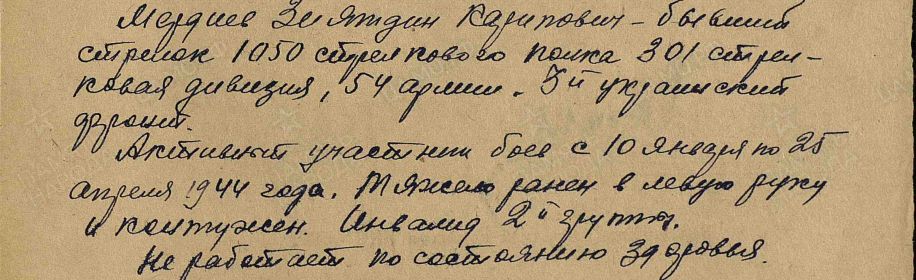 Мердиев Зияждин Карипович – бывший
стрелок 1050 стрелкового полка 301 стрел-
ковая дивизия, 54 армии. 3й украинский
фронт.
Активный участник боев с 10 января по 25
апреля 1944 года. Тяжело ранен в левую руку
и контужен. Инвалид 2й группы.
Не работает по состоянию здоровья.